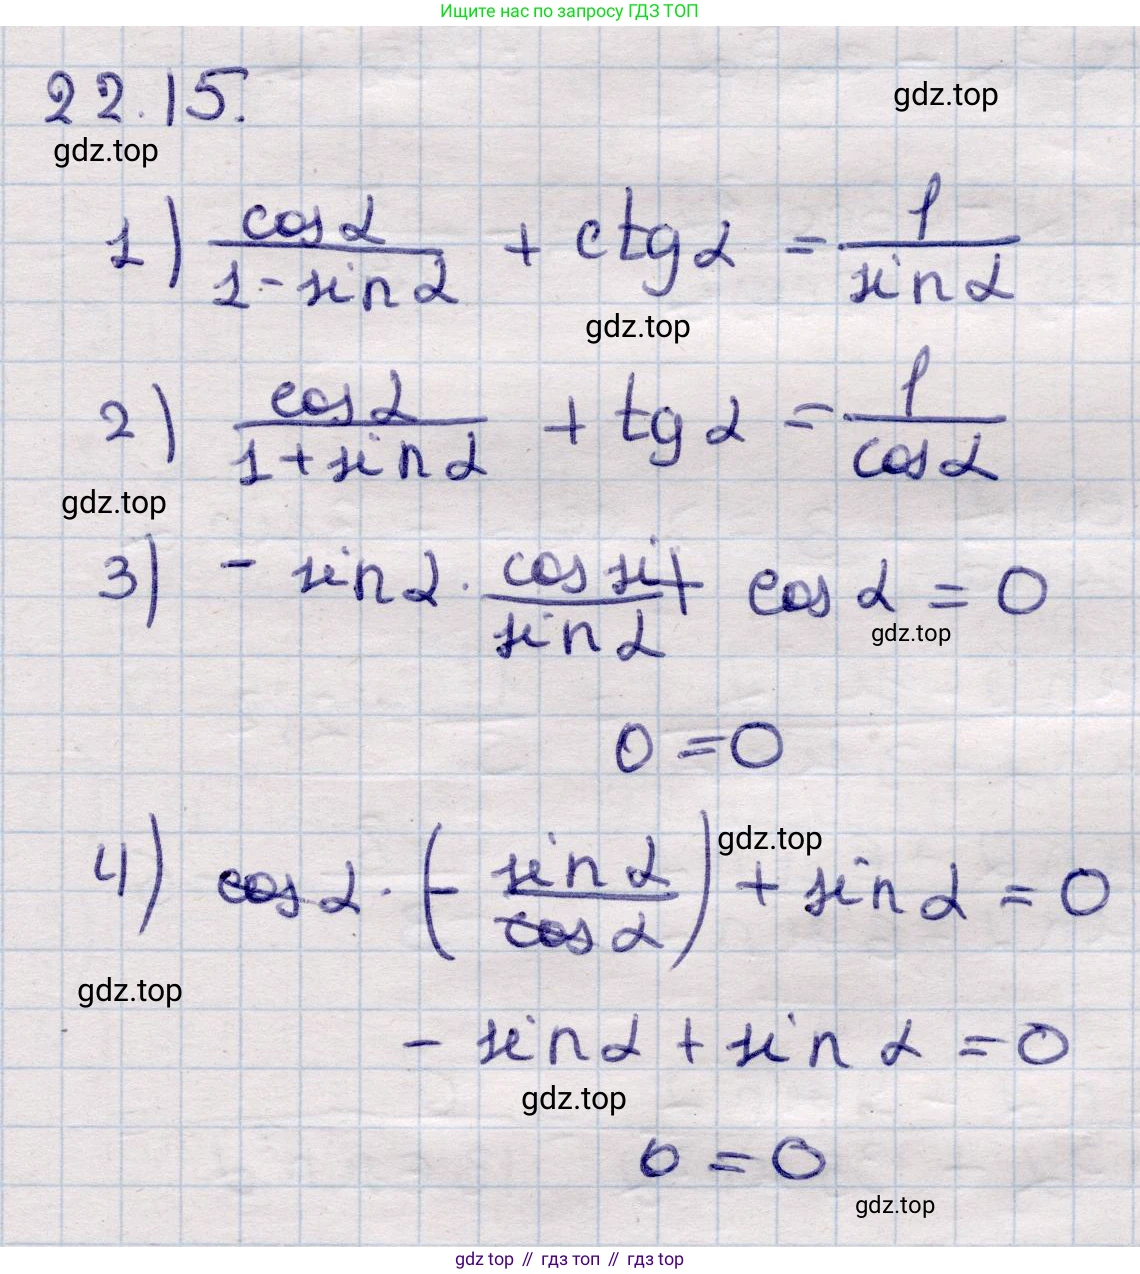 Ищите нас по запросу ГДЗ ТОП
22.15.
gdz.top
gdz.top
1) cos α / (1 - sin α) + ctg α = 1 / sin α
gdz.top
2) cos α / (1 + sin α) + tg α = 1 / cos α
gdz.top
3) - sin α · cos si / sin α + cos α = 0
gdz.top
0 = 0
4) cos α · (- sin α / cos α) + sin α = 0
gdz.top
gdz.top
- sin α + sin α = 0
gdz.top
0 = 0
gdz.top
gdz.top // гдз топ // гдз top